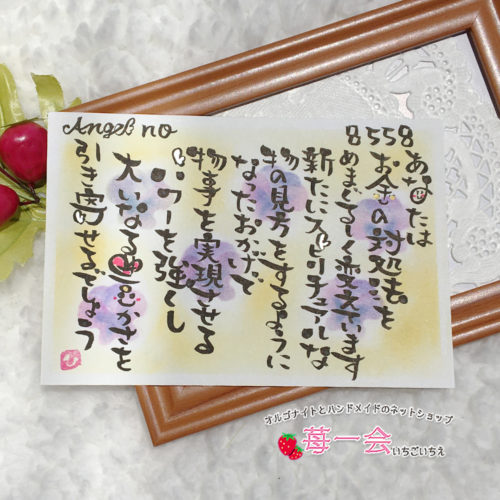 Angel no
8558
あなたは
お金の対処法を
めまぐるしく変えています
新たにスピリチュアルな
物の見方をするように
なったおかげで
物事を実現させる
パワーを強くし
大いなる豊かさを
引き寄せるでしょう
オルゴナイトとハンドメイドのネットショップ
苺一会いちごいちえ